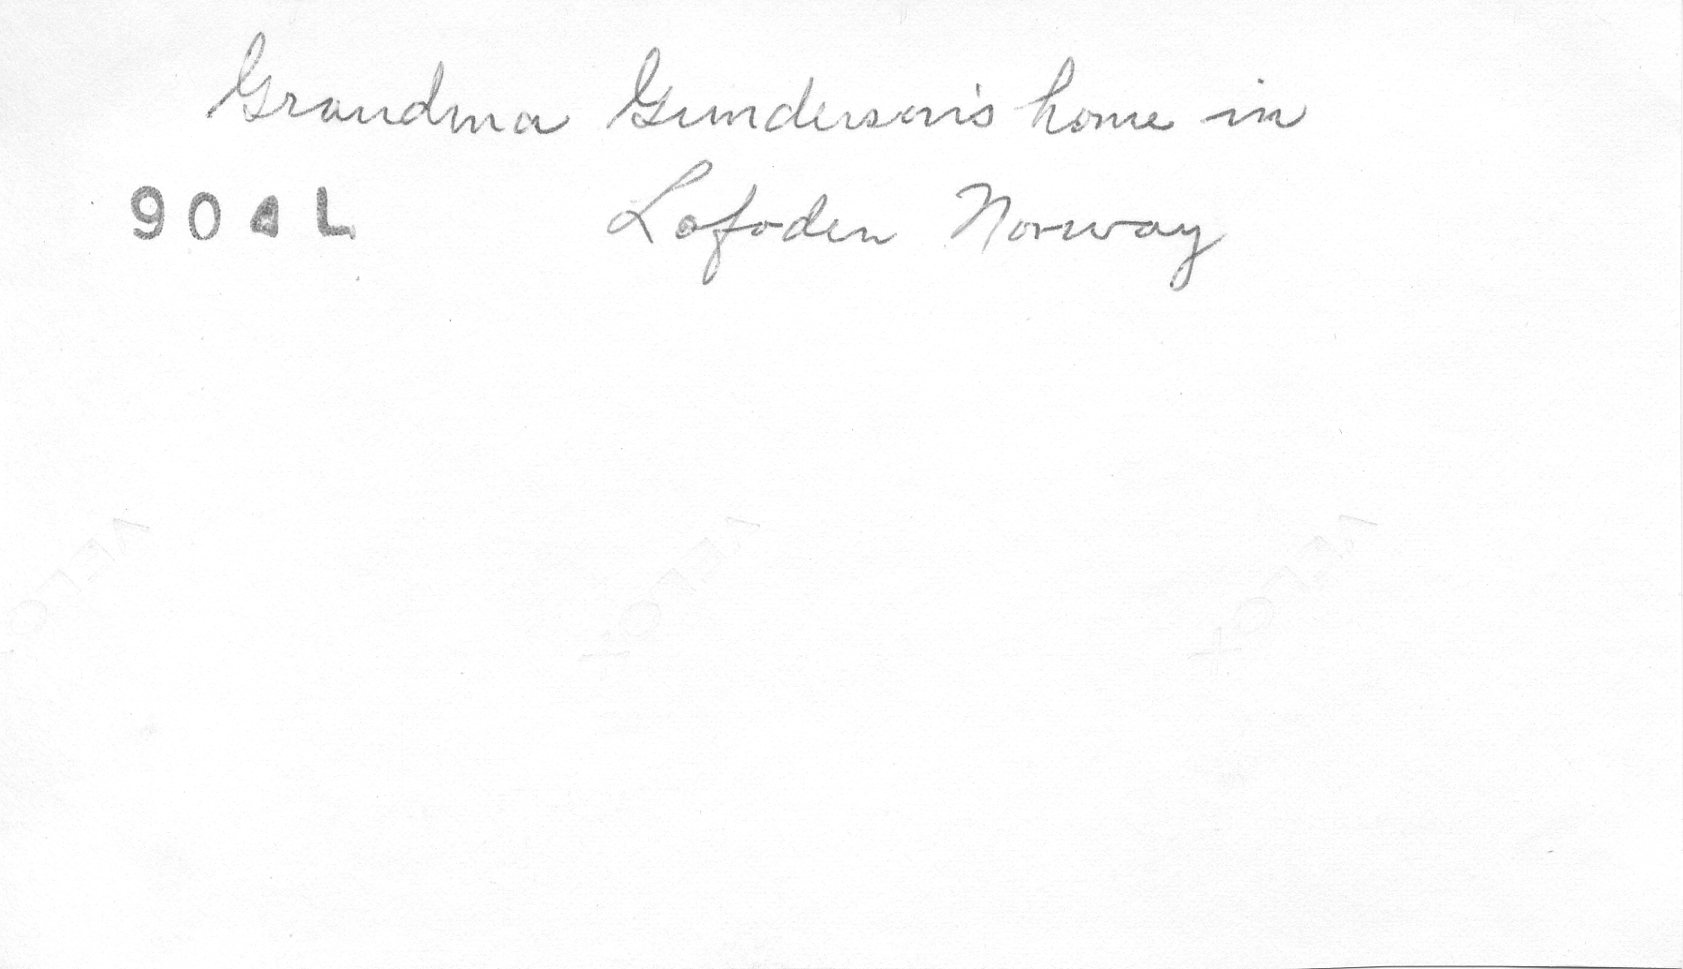 Grandma Gunderson's home in
Lofoden Norway
90 L
VELOX
VELOX